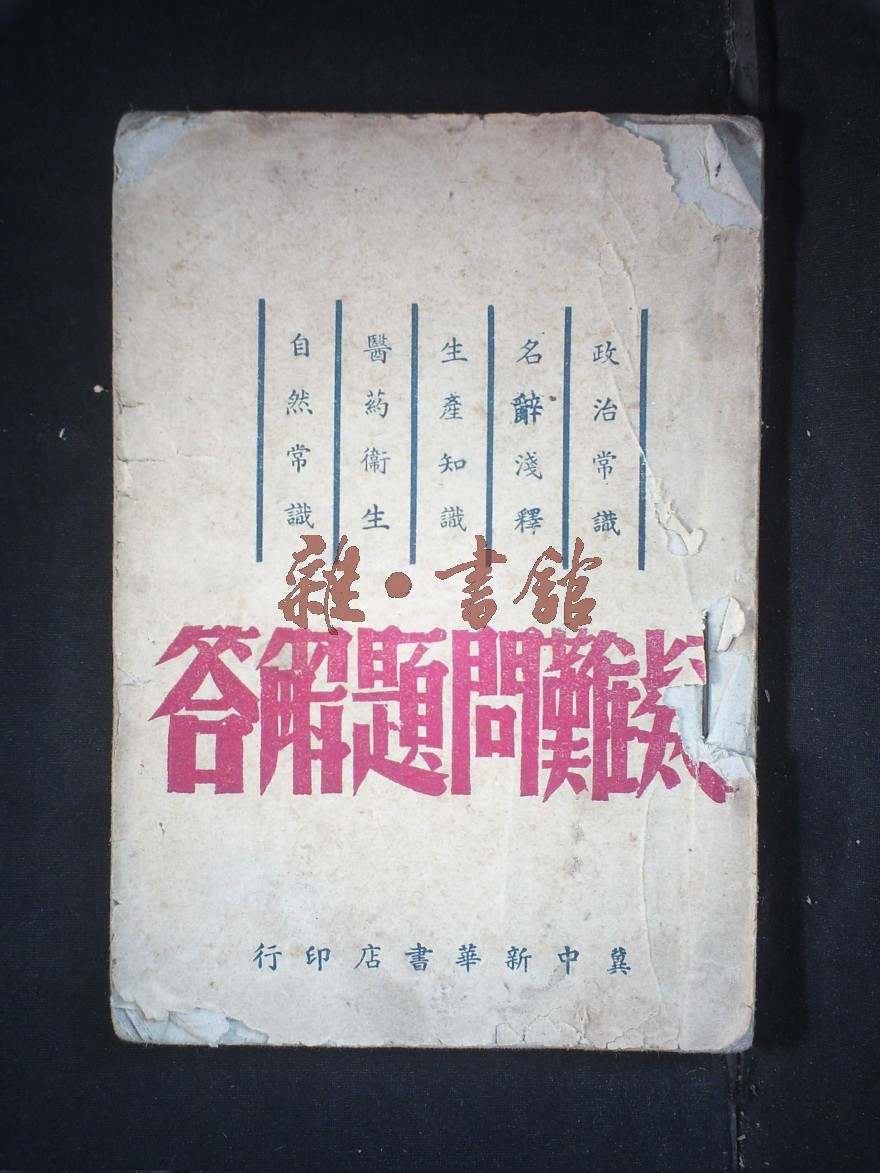 政治常識
名辭淺釋
生產知識
醫葯衛生
自然常識
雜·書館
疑難問題解答
冀中新華書店印行